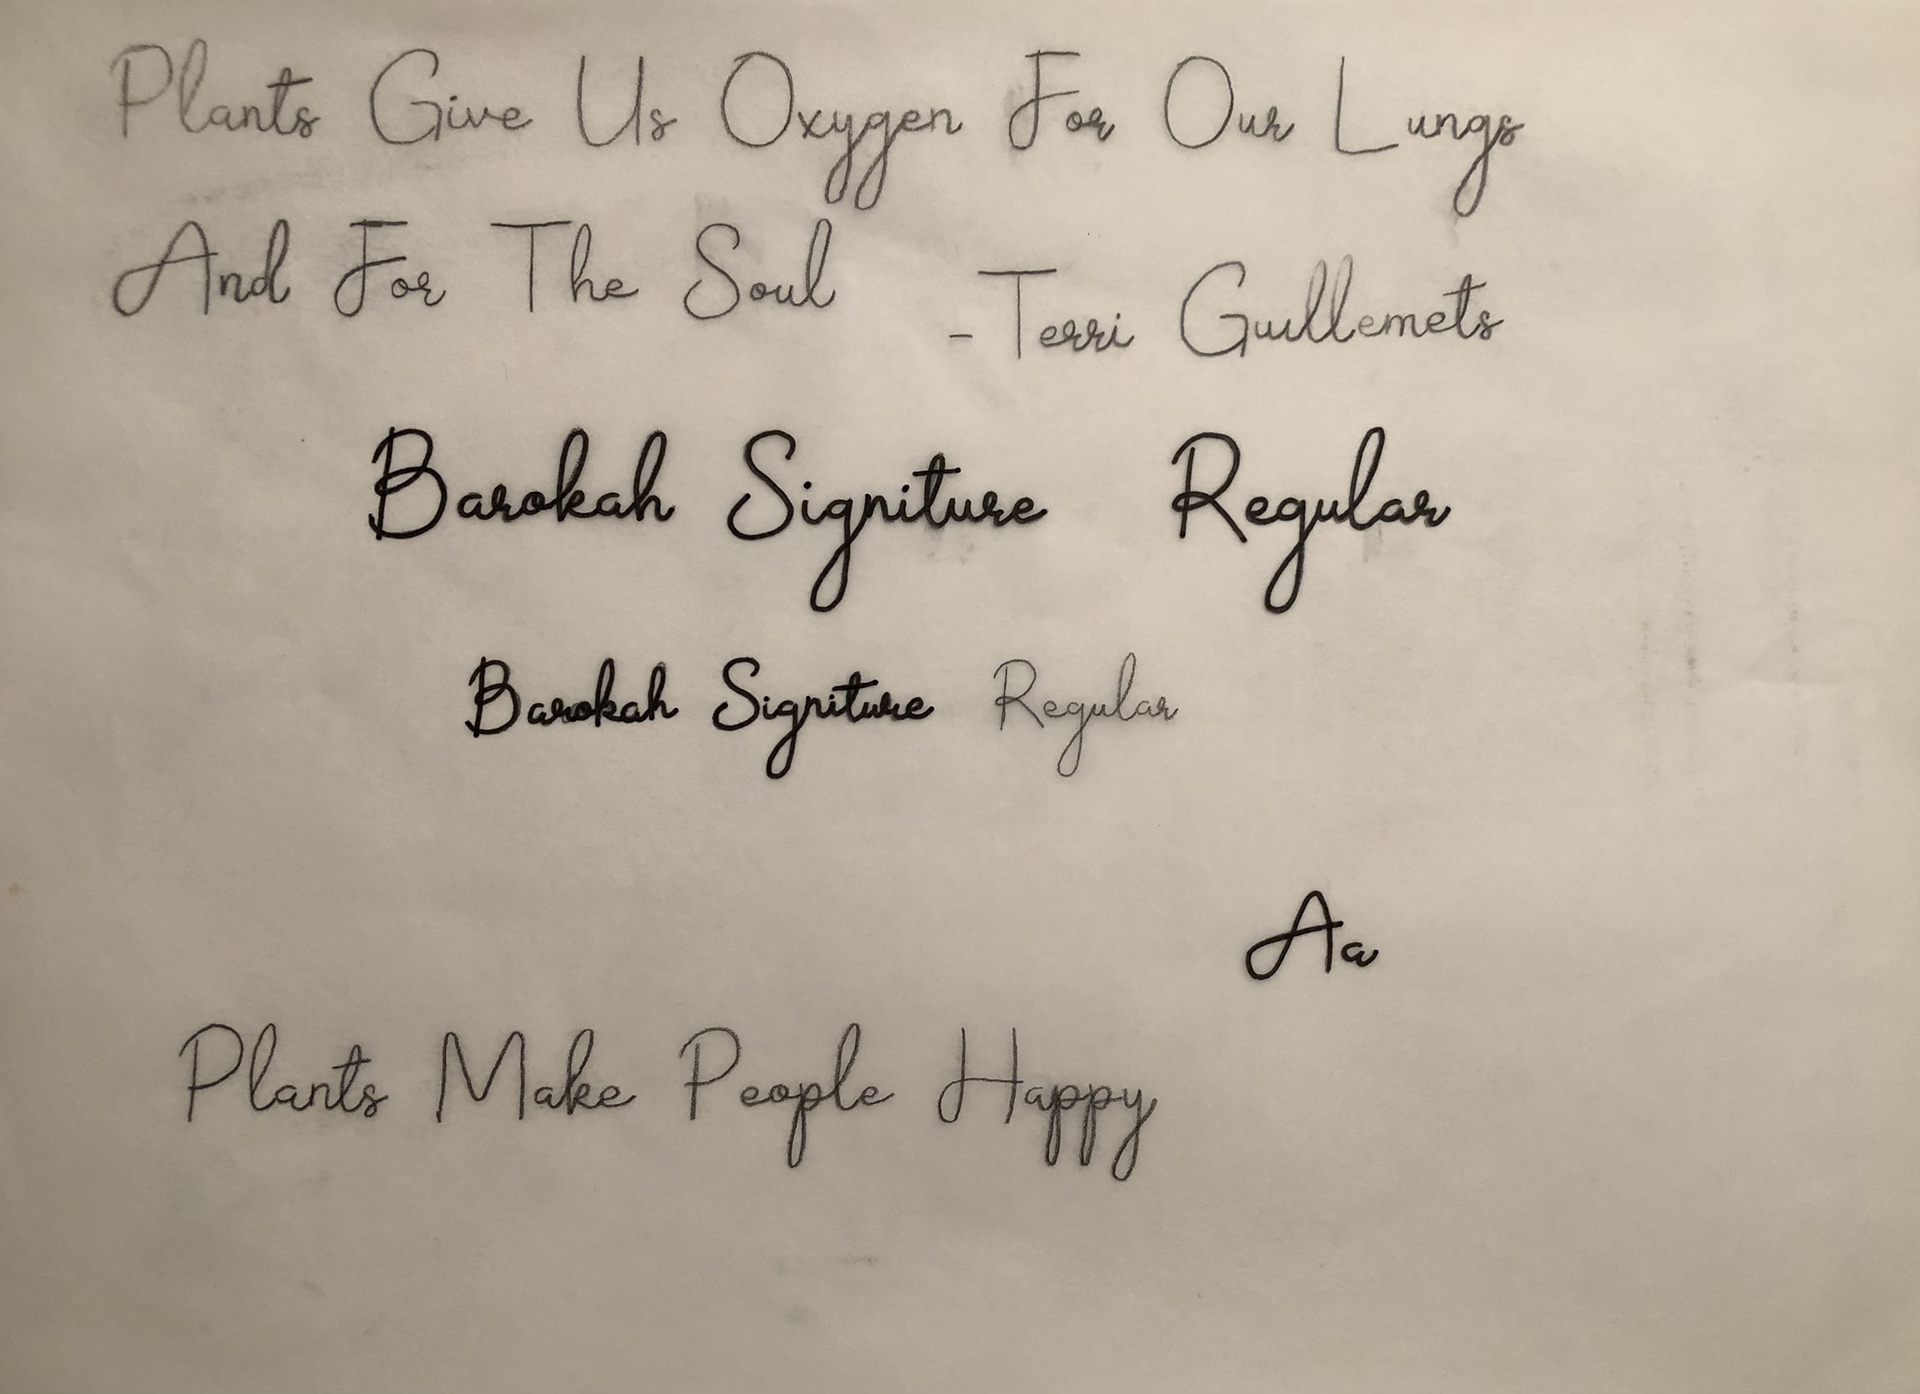 Plants Give Us Oxygen For Our Lungs
And For The Soul
-Terri Guillemets
Barokah Signiture Regular
Barokah Signiture Regular
Aa
Plants Make People Happy